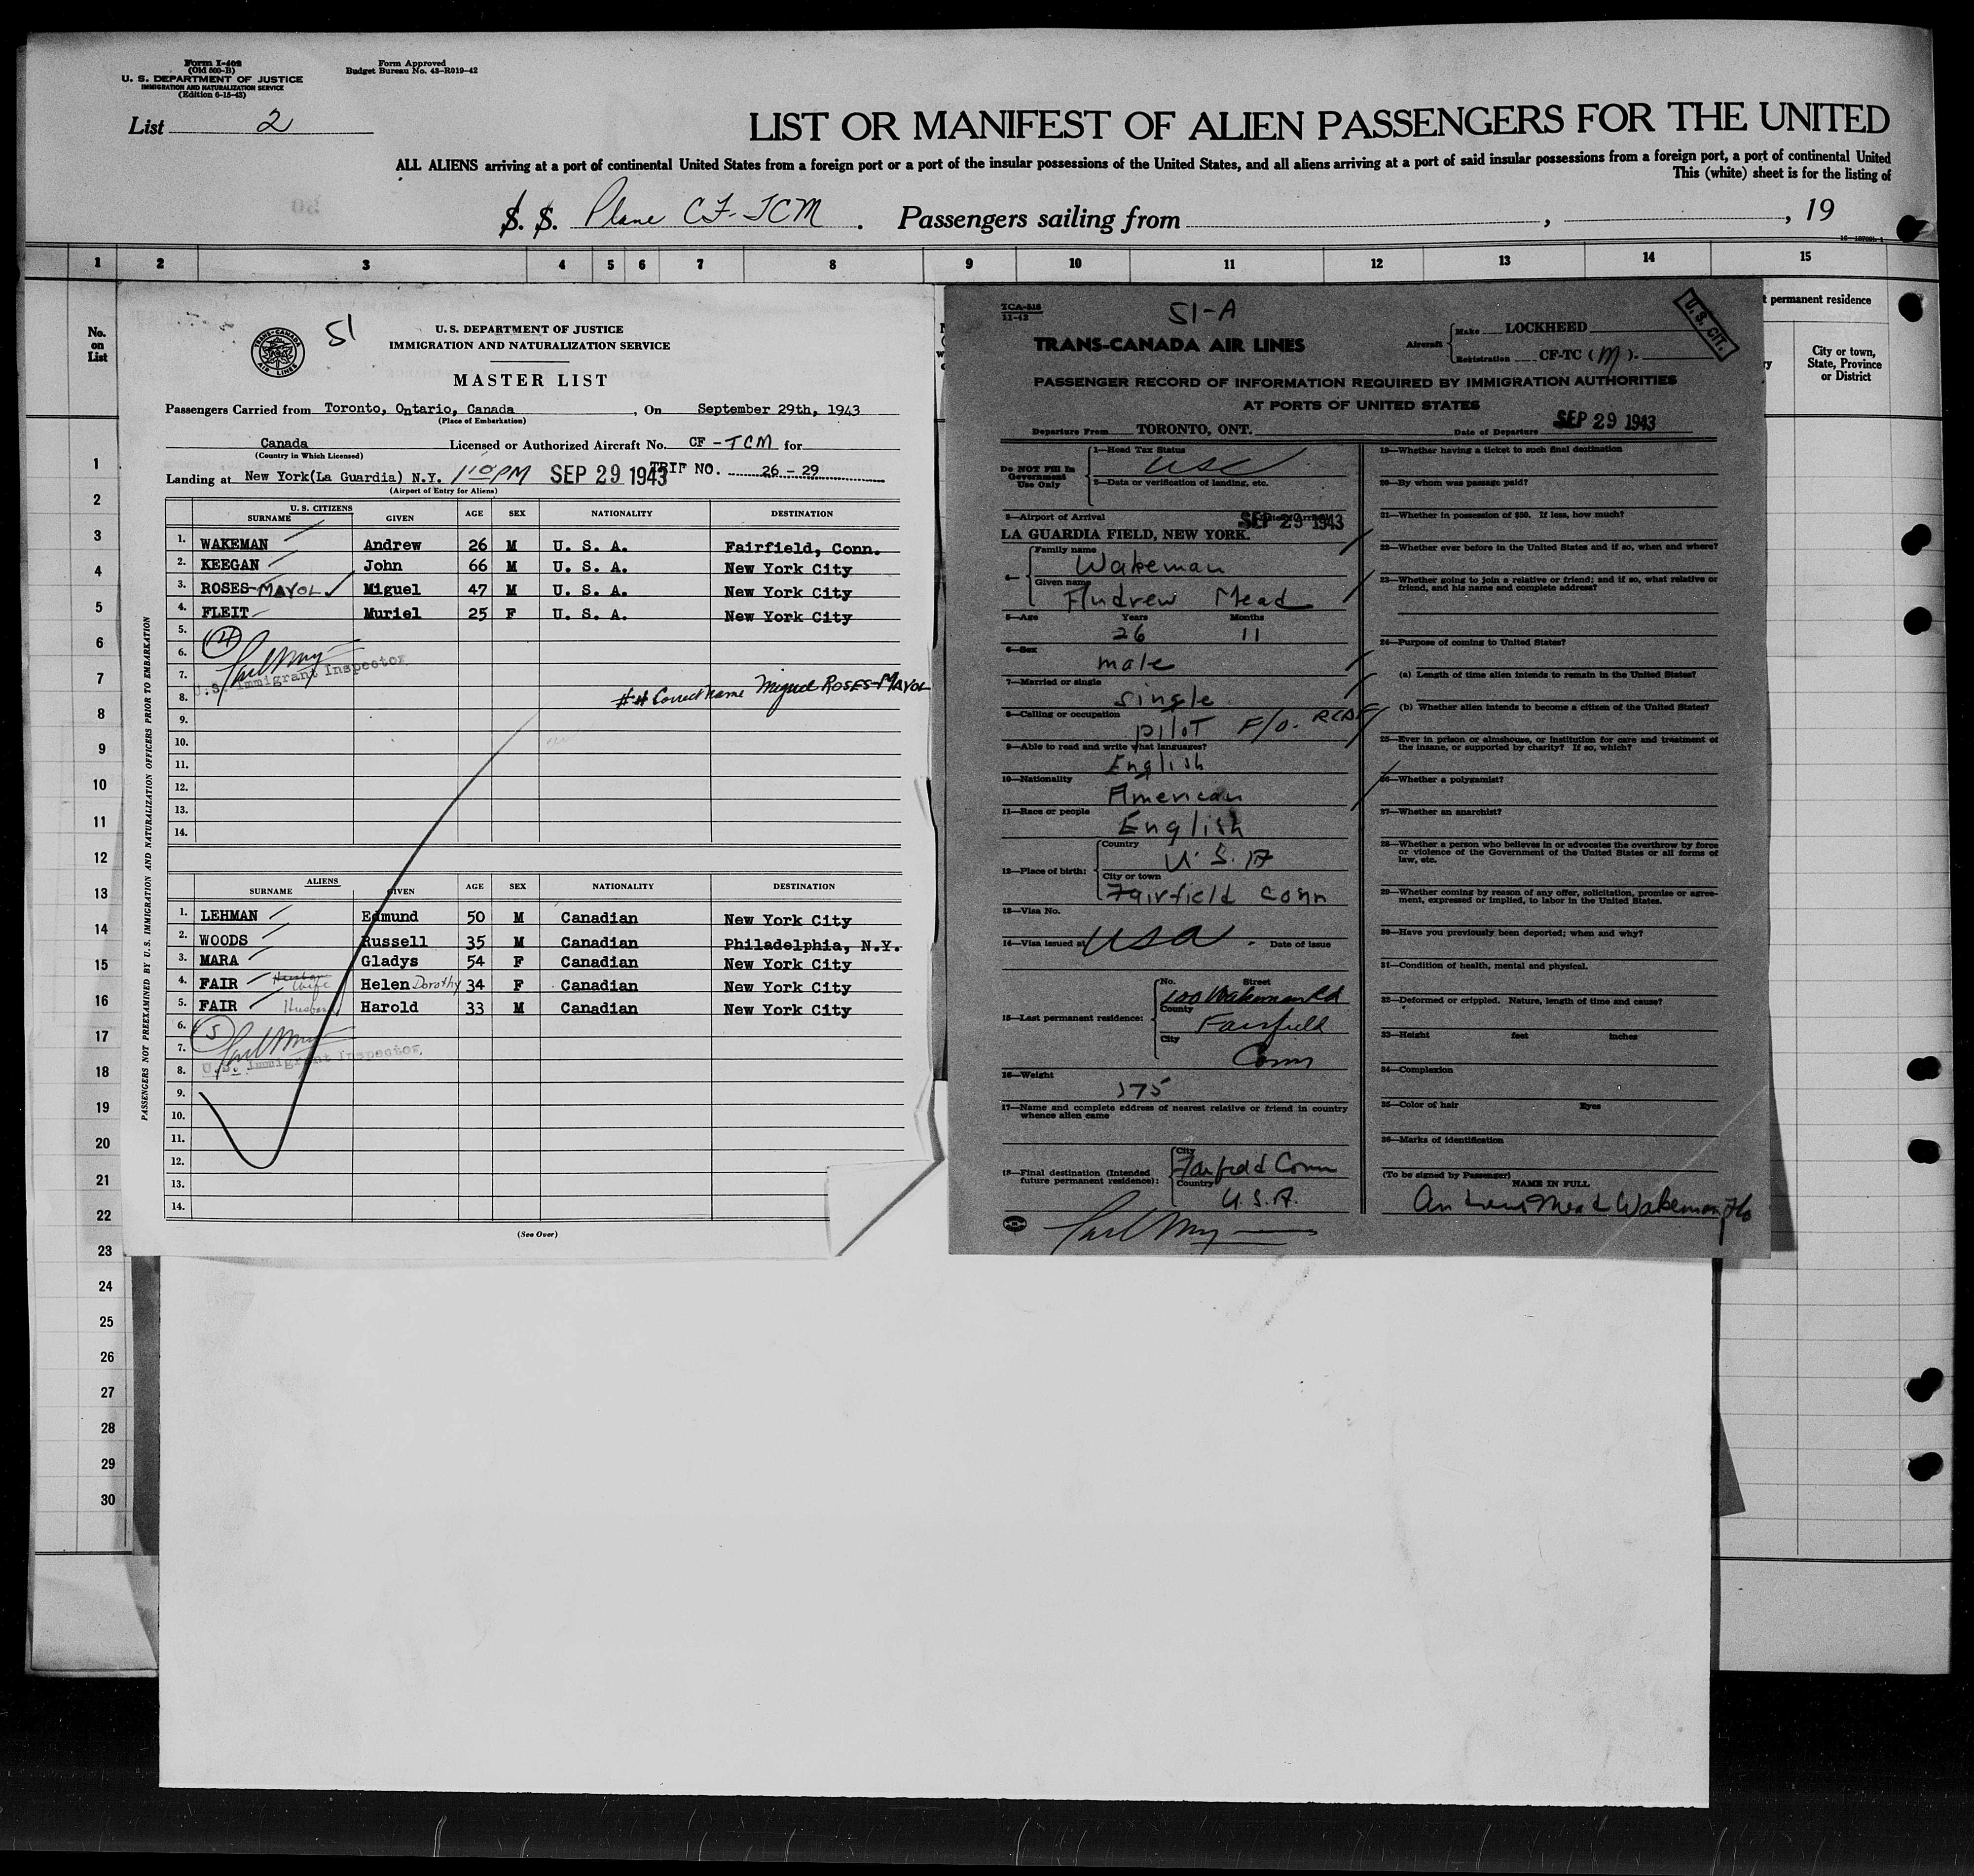 Form I-402
(Old 500-B)
U. S. DEPARTMENT OF JUSTICE
IMMIGRATION AND NATURALIZATION SERVICE
(Edition 6-15-43)
Form Approved
Budget Bureau No. 43-R019-42
List 2
LIST OR MANIFEST OF ALIEN PASSENGERS FOR THE UNITED
ALL ALIENS arriving at a port of continental United States from a foreign port or a port of the insular possessions of the United States, and all aliens arriving at a port of said insular possessions from a foreign port, a port of continental United
This (white) sheet is for the listing of
S. S. Plane CF-TCM. Passengers sailing from , , 19
1 2 3 4 5 6 7 8 9 10 11 12 13 14 15
No. on List
t permanent residence
City or town, State, Province or District
1
2
3
4
5
6
7
8
9
10
11
12
13
14
15
16
17
18
19
20
21
22
23
24
25
26
27
28
29
30
51
TRANS-CANADA AIR LINES
U. S. DEPARTMENT OF JUSTICE
IMMIGRATION AND NATURALIZATION SERVICE
MASTER LIST
Passengers Carried from Toronto, Ontario, Canada, On September 29th, 1943
(Place of Embarkation)
Canada Licensed or Authorized Aircraft No. CF-TCM for
(Country in Which Licensed)
Landing at New York(La Guardia) N.Y. 1:10 PM SEP 29 1943 TRIP NO. 26-29
(Airport of Entry for Aliens)
U. S. CITIZENS
SURNAME GIVEN AGE SEX NATIONALITY DESTINATION
1. WAKEMAN Andrew 26 M U. S. A. Fairfield, Conn.
2. KEEGAN John 66 M U. S. A. New York City
3. ROSES-MAYOL Miguel 47 M U. S. A. New York City
4. FLEIT Muriel 25 F U. S. A. New York City
5.
6. (4)
7. U.S. Immigrant Inspector
8. ## Correct name Miguel ROSES-MAYOL
9.
10.
11.
12.
13.
14.
ALIENS
SURNAME GIVEN AGE SEX NATIONALITY DESTINATION
1. LEHMAN Edmund 50 M Canadian New York City
2. WOODS Russell 35 M Canadian Philadelphia, N.Y.
3. MARA Gladys 54 F Canadian New York City
4. FAIR Husban Wife Helen Dorothy 34 F Canadian New York City
5. FAIR Husband Harold 33 M Canadian New York City
6. (5)
7.
8. U.S. Immigrant Inspector
9.
10.
11.
12.
13.
14.
(See Over)
PASSENGERS NOT PREEXAMINED BY U. S. IMMIGRATION AND NATURALIZATION OFFICERS PRIOR TO EMBARKATION
TCA-518
11-42
51-A
U. S. CIT.
TRANS-CANADA AIR LINES
Aircraft Make LOCKHEED
Registration CF-TC (M).
PASSENGER RECORD OF INFORMATION REQUIRED BY IMMIGRATION AUTHORITIES
AT PORTS OF UNITED STATES
Departure From TORONTO, ONT. Date of Departure SEP 29 1943
Do NOT Fill In Government Use Only
1—Head Tax Status
USC
2—Data or verification of landing, etc.
3—Airport of Arrival SEP 29 1943
LA GUARDIA FIELD, NEW YORK.
4—Family name
Wakeman
Given name
Andrew Mead
5—Age Years Months
26 11
6—Sex
male
7—Married or single
single
8—Calling or occupation
pilot F/O. RCAF
9—Able to read and write what languages?
English
10—Nationality
American
11—Race or people
English
12—Place of birth: Country
U. S. A
City or town
Fairfield Conn
13—Visa No.
14—Visa issued at USA. Date of issue
15—Last permanent residence: No. Street
100 Wakeman Rd
County
Fairfield
City
Conn
16—Weight
175
17—Name and complete address of nearest relative or friend in country
whence alien came
18—Final destination (Intended future permanent residence): City
Fairfield Conn
Country
U.S.A.
19—Whether having a ticket to such final destination
20—By whom was passage paid?
21—Whether in possession of $50. If less, how much?
22—Whether ever before in the United States and if so, when and where?
23—Whether going to join a relative or friend; and if so, what relative or
friend, and his name and complete address?
24—Purpose of coming to United States?
(a) Length of time alien intends to remain in the United States?
(b) Whether alien intends to become a citizen of the United States?
25—Ever in prison or almshouse, or institution for care and treatment of
the insane, or supported by charity? If so, which?
26—Whether a polygamist?
27—Whether an anarchist?
28—Whether a person who believes in or advocates the overthrow by force
or violence of the Government of the United States or all forms of
law, etc.
29—Whether coming by reason of any offer, solicitation, promise or agree-
ment, expressed or implied, to labor in the United States.
30—Have you previously been deported; when and why?
31—Condition of health, mental and physical.
32—Deformed or crippled. Nature, length of time and cause?
33—Height feet inches
34—Complexion
35—Color of hair Eyes
36—Marks of identification
(To be signed by Passenger)
NAME IN FULL
Andrew Mead Wakeman F/o